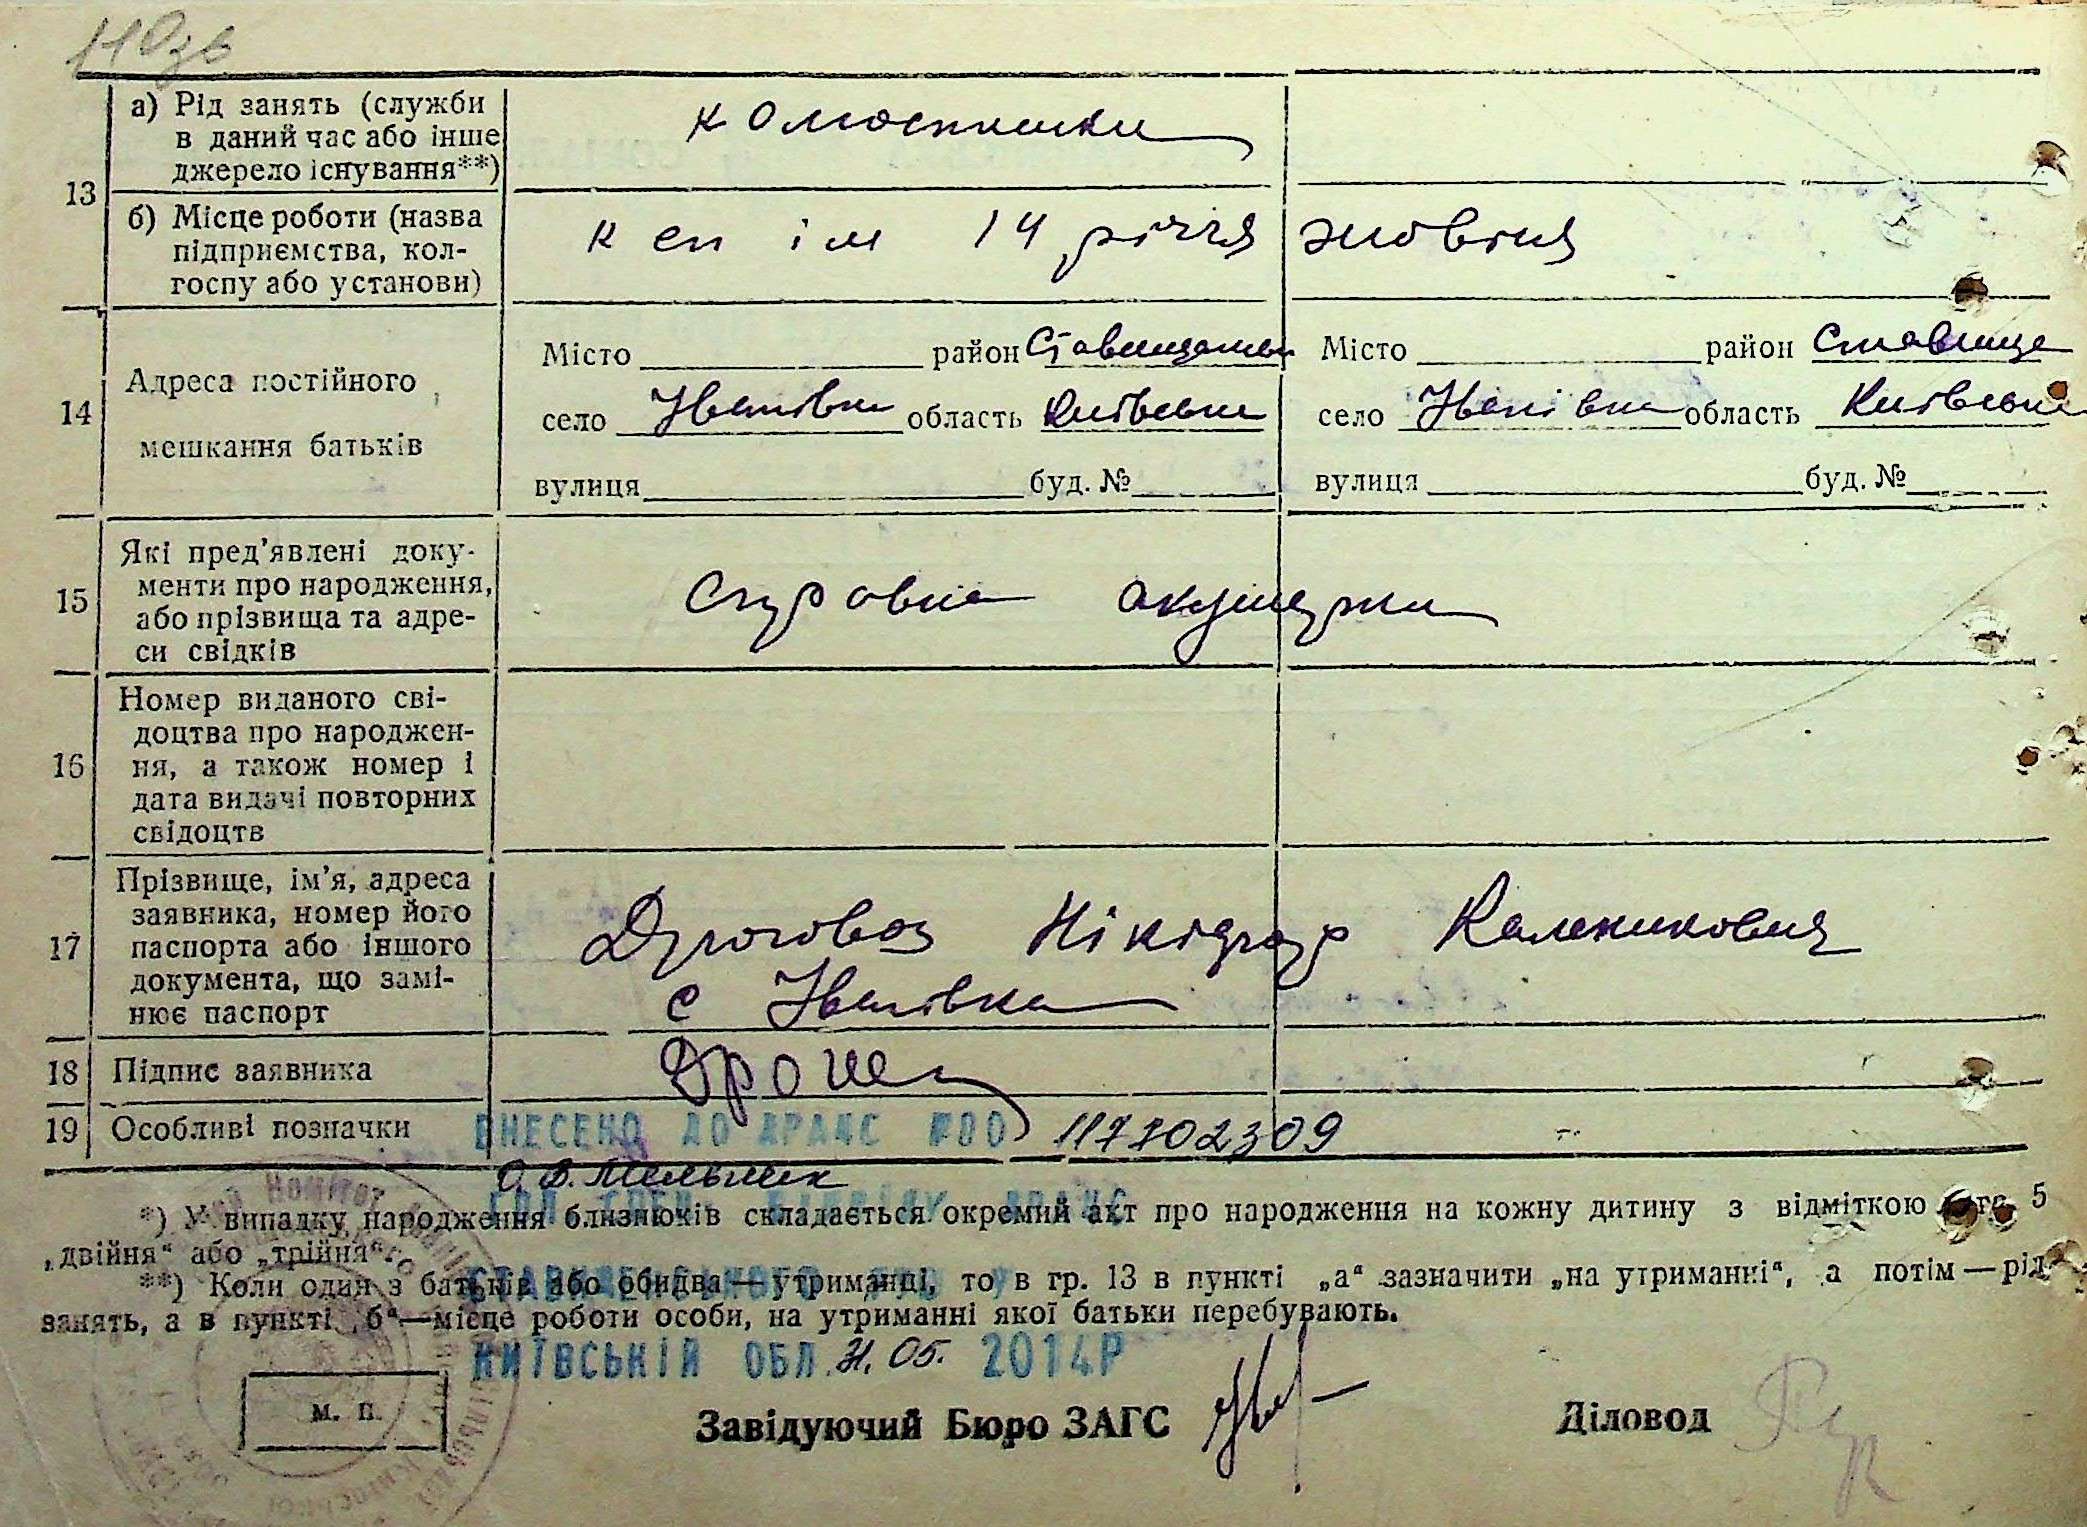 110зв
13
а) Рід занять (служби
в даний час або інше
джерело існування**)
колгоспники
б) Місце роботи (назва
підприємства, кол-
госпу або установи)
ксп ім 14 річчя жовтня
14
Адреса постійного
мешкання батьків
Місто район Ставищанськ
село Іванівка область Київська
вулиця буд. №
Місто район Ставище
село Іванівка область Київська
вулиця буд. №
15
Які пред'явлені доку-
менти про народження,
або прізвища та адре-
си свідків
Справка акушерки
16
Номер виданого сві-
доцтва про народжен-
ня, а також номер і
дата видачі повторних
свідоцтв
17
Прізвище, ім'я, адреса
заявника, номер його
паспорта або іншого
документа, що замі-
нює паспорт
с Іванівка
18
Підпис заявника
19
Особливі позначки
ВНЕСЕНО ДО ДРАЦС 00 117702309
О.В. Мельник
*) У випадку народження близнюків складається окремий акт про народження на кожну дитину з відміткою в гр. 5
„двійня“ або „трійня“.
**) Коли один з батьків або обидва — утриманці, то в гр. 13 в пункті „а“ зазначити „на утриманні“, а потім — рід
занять, а в пункті „б“ — місце роботи особи, на утриманні якої батьки перебувають.
КИЇВСЬКІЙ ОБЛ. 31.05. 2014Р
м. п.
Завідуючий Бюро ЗАГС
Діловод